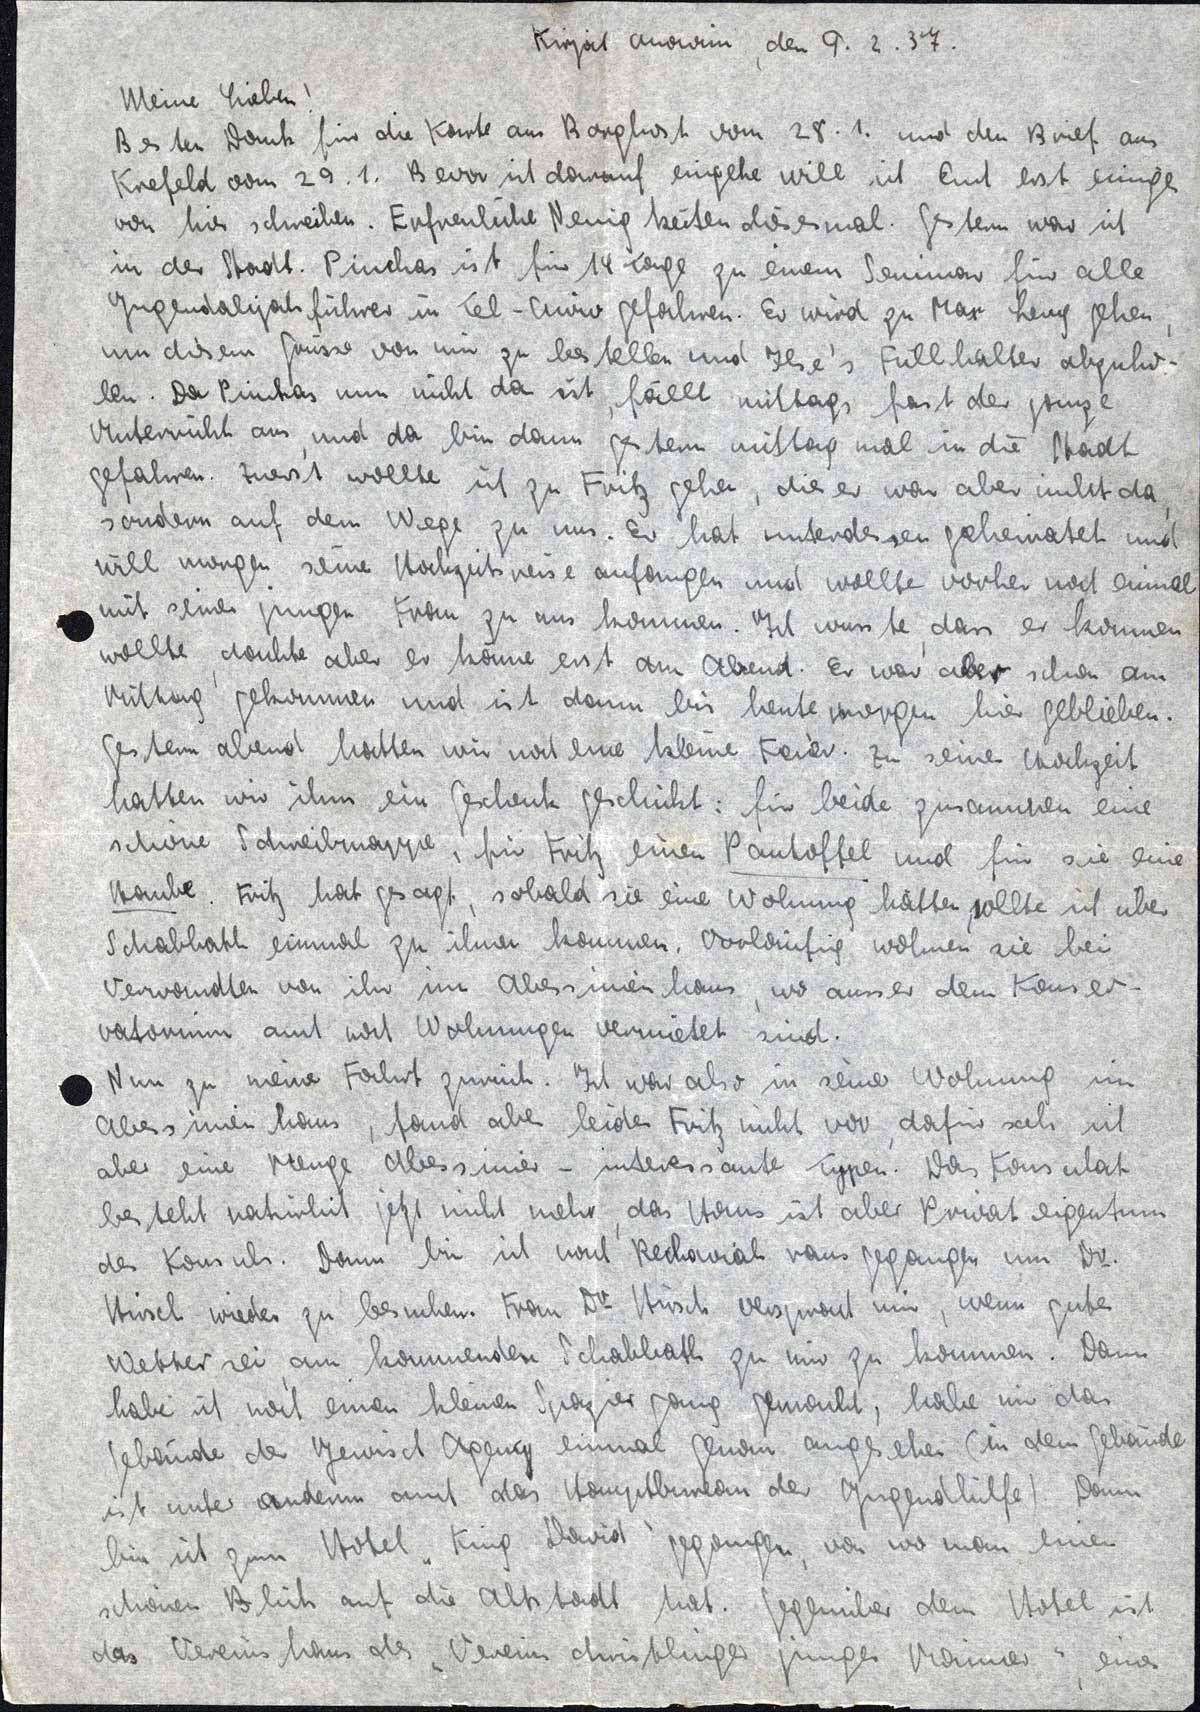 Kirjat Anavim, den 9. 2. 37.
Meine Lieben!
Besten Dank für die Karte aus Borghorst vom 28. 1. und den Brief aus
Krefeld vom 29. 1. Bevor ich darauf eingehe will ich Euch erst einiges
von hier schreiben. Erfreuliche Neuigkeiten diesmal. Gestern war ich
in der Stadt. Pinchas ist für 14 Tage zu einem Seminar für alle
Jugendalijahführer in Tel-Aviv gefahren. Er wird zu Max Levy gehen,
um diesem Grüsse von mir zu bestellen und Ilse's Füllhalter abzuho-
len. Da Pinchas nun nicht da ist, fällt mittags fast der ganze
Unterricht aus, und da bin dann gestern mittag mal in die Stadt
gefahren. Zuerst wollte ich zu Fritz gehen, dieser war aber nicht da,
sondern auf dem Wege zu uns. Er hat unterdessen geheiratet und
will morgen seine Hochzeitsreise anfangen und wollte vorher noch einmal
mit seiner jungen Frau zu uns kommen. Ich wusste, dass er kommen
wollte, dachte aber er käme erst am Abend. Er war aber schon am
Mittag gekommen und ist dann bis heute morgen hier geblieben.
Gestern abend hatten wir noch eine kleine Feier. Zu seiner Hochzeit
hatten wir ihm ein Geschenk geschickt: für beide zusammen eine
schöne Schreibmappe, für Fritz einen Pantoffel und für sie eine
Haube. Fritz hat gesagt, sobald sie eine Wohnung hätten, sollte ich über
Schabbath einmal zu ihnen kommen. Vorläufig wohnen sie bei
Verwandten von ihr im Abessinienhaus, wo ausser dem Konser-
vatorium auch noch Wohnungen vermietet sind.
Nun zu meiner Fahrt zurück. Ich war also in seiner Wohnung im
Abessinienhaus, fand aber leider Fritz nicht vor, dafür sah ich
aber eine Menge Abessinier - interessante Typen. Das Konsulat
besteht natürlich jetzt nicht mehr, das Haus ist aber Privateigentum
des Konsuls. Dann bin ich nach Rechawiah rausgegangen um Dr.
Hirsch wieder zu besuchen. Frau Dr Hirsch versprach mir, wenn gutes
Wetter sei, am kommenden Schabbath zu mir zu kommen. Dann
habe ich noch einen kleinen Spaziergang gemacht, habe mir das
Gebäude der Jewisch Agency einmal genau angesehen (in dem Gebäude
ist unter anderm auch das Hauptbureau der Jugendhilfe) Dann
bin ich zum Hotel „King David" gegangen, von wo man einen
schönen Blick auf die Altstadt hat. Gegenüber dem Hotel ist
das Vereinshaus des „Vereins christlicher junger Männer", eines